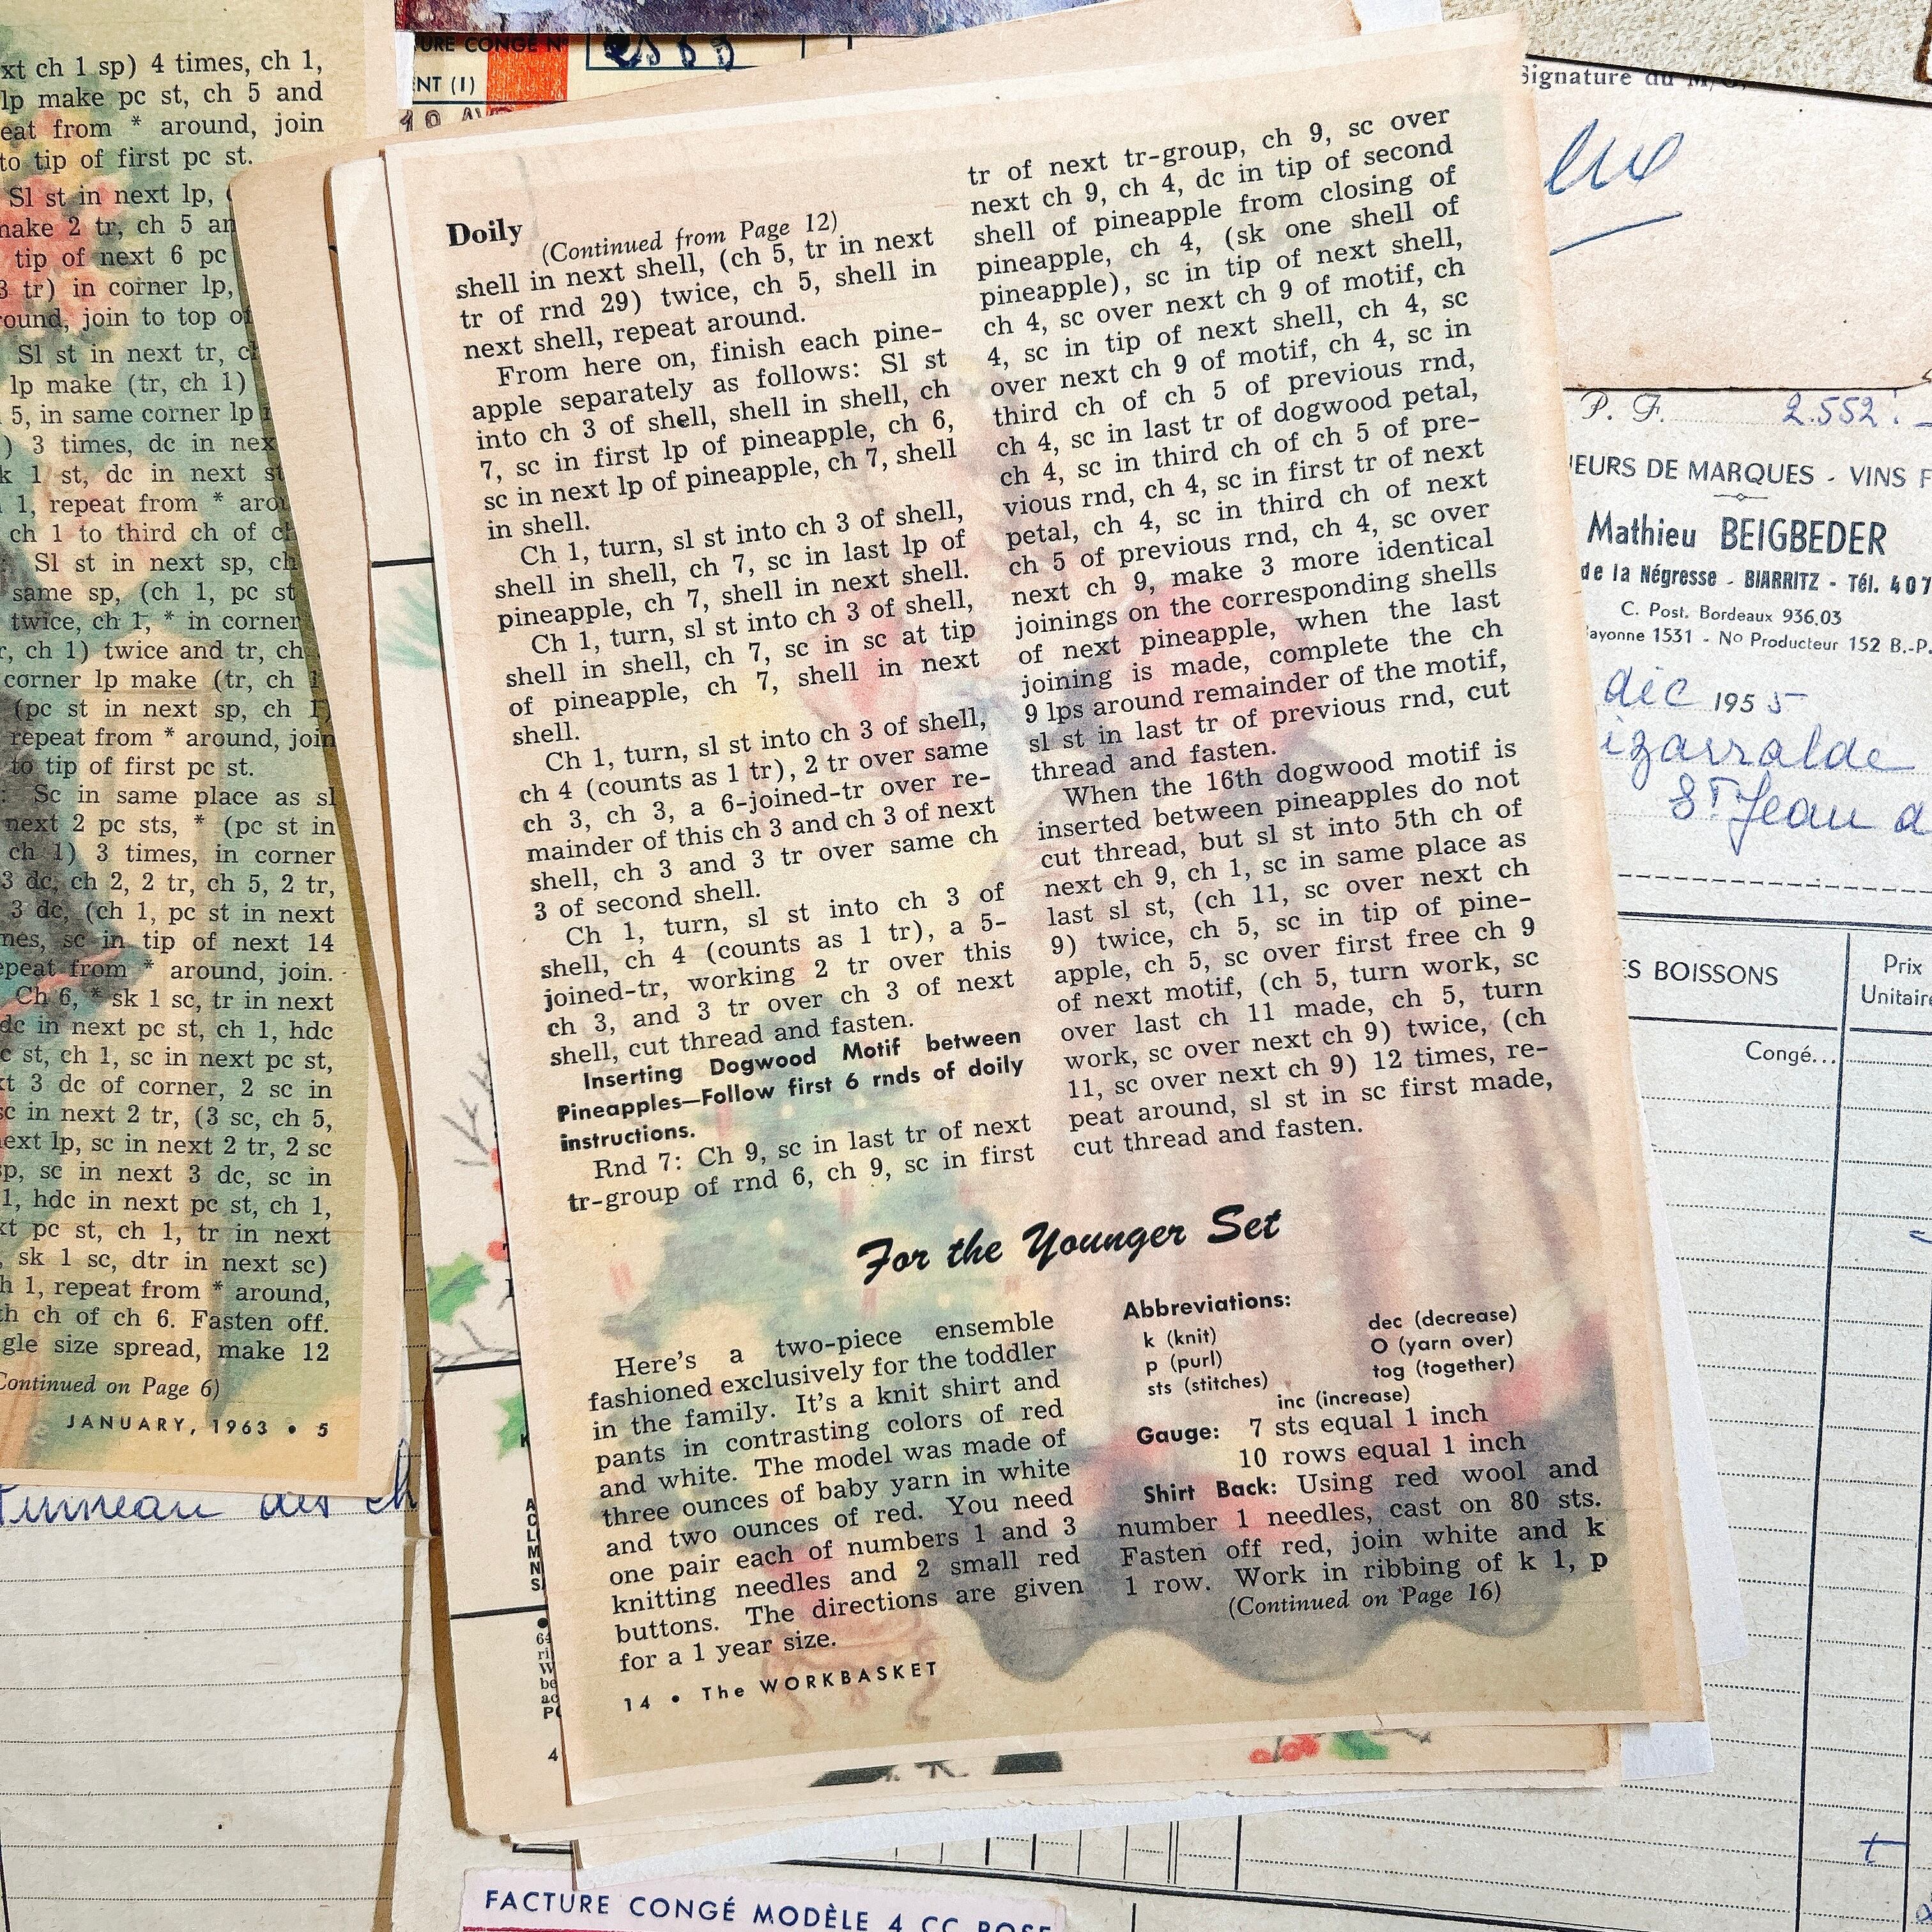 xt ch 1 sp) 4 times, ch 1,
lp make pc st, ch 5 and
eat from * around, join
to tip of first pc st.
Sl st in next lp,
make 2 tr, ch 5 an
tip of next 6 pc
3 tr) in corner lp,
ound, join to top of
Sl st in next tr, c
lp make (tr, ch 1)
5, in same corner lp
) 3 times, dc in nex
k 1 st, dc in next st
1, repeat from * arou
ch 1 to third ch of ch
Sl st in next sp, ch
same sp, (ch 1, pc st
twice, ch 1, * in corner
r, ch 1) twice and tr, ch
corner lp make (tr, ch 1
(pc st in next sp, ch 1)
repeat from * around, join
to tip of first pc st.
: Sc in same place as sl
next 2 pc sts, * (pc st in
ch 1) 3 times, in corner
3 dc, ch 2, 2 tr, ch 5, 2 tr,
3 dc, (ch 1, pc st in next
mes, sc in tip of next 14
epeat from * around, join.
Ch 6, * sk 1 sc, tr in next
dc in next pc st, ch 1, hdc
c st, ch 1, sc in next pc st,
xt 3 dc of corner, 2 sc in
sc in next 2 tr, (3 sc, ch 5,
next lp, sc in next 2 tr, 2 sc
sp, sc in next 3 dc, sc in
1, hdc in next pc st, ch 1,
xt pc st, ch 1, tr in next
sk 1 sc, dtr in next sc)
h 1, repeat from * around,
th ch of ch 6. Fasten off.
gle size spread, make 12
Continued on Page 6)
JANUARY, 1963 • 5
URE CONGÉ N°
ENT (I)
Doily
(Continued from Page 12)
shell in next shell, (ch 5, tr in next
tr of rnd 29) twice, ch 5, shell in
next shell, repeat around.
From here on, finish each pine-
apple separately as follows: Sl st
into ch 3 of shell, shell in shell, ch
7, sc in first lp of pineapple, ch 6,
sc in next lp of pineapple, ch 7, shell
in shell.
Ch 1, turn, sl st into ch 3 of shell,
shell in shell, ch 7, sc in last lp of
pineapple, ch 7, shell in next shell.
Ch 1, turn, sl st into ch 3 of shell,
shell in shell, ch 7, sc in sc at tip
of pineapple, ch 7, shell in next
shell.
Ch 1, turn, sl st into ch 3 of shell,
ch 4 (counts as 1 tr), 2 tr over same
ch 3, ch 3, a 6-joined-tr over re-
mainder of this ch 3 and ch 3 of next
shell, ch 3 and 3 tr over same ch
3 of second shell.
Ch 1, turn, sl st into ch 3 of
shell, ch 4 (counts as 1 tr), a 5-
joined-tr, working 2 tr over this
ch 3, and 3 tr over ch 3 of next
shell, cut thread and fasten.
Inserting Dogwood Motif between
Pineapples—Follow first 6 rnds of doily
instructions.
Rnd 7: Ch 9, sc in last tr of next
tr-group of rnd 6, ch 9, sc in first
tr of next tr-group, ch 9, sc over
next ch 9, ch 4, dc in tip of second
shell of pineapple from closing of
pineapple, ch 4, (sk one shell of
pineapple), sc in tip of next shell,
ch 4, sc over next ch 9 of motif, ch
4, sc in tip of next shell, ch 4, sc
over next ch 9 of motif, ch 4, sc in
third ch of ch 5 of previous rnd,
ch 4, sc in last tr of dogwood petal,
ch 4, sc in third ch of ch 5 of pre-
vious rnd, ch 4, sc in first tr of next
petal, ch 4, sc in third ch of next
ch 5 of previous rnd, ch 4, sc over
next ch 9, make 3 more identical
joinings on the corresponding shells
of next pineapple, when the last
joining is made, complete the ch
9 lps around remainder of the motif,
sl st in last tr of previous rnd, cut
thread and fasten.
When the 16th dogwood motif is
inserted between pineapples do not
cut thread, but sl st into 5th ch of
next ch 9, ch 1, sc in same place as
last sl st, (ch 11, sc over next ch
9) twice, ch 5, sc in tip of pine-
apple, ch 5, sc over first free ch 9
of next motif, (ch 5, turn work, sc
over last ch 11 made, ch 5, turn
work, sc over next ch 9) twice, (ch
11, sc over next ch 9) 12 times, re-
peat around, sl st in sc first made,
cut thread and fasten.
For the Younger Set
Here's a two-piece ensemble
fashioned exclusively for the toddler
in the family. It's a knit shirt and
pants in contrasting colors of red
and white. The model was made of
three ounces of baby yarn in white
and two ounces of red. You need
one pair each of numbers 1 and 3
knitting needles and 2 small red
buttons. The directions are given
for a 1 year size.
Abbreviations:
k (knit) dec (decrease)
p (purl) O (yarn over)
sts (stitches) tog (together)
inc (increase)
Gauge: 7 sts equal 1 inch
10 rows equal 1 inch
Shirt Back: Using red wool and
number 1 needles, cast on 80 sts.
Fasten off red, join white and k
1 row. Work in ribbing of k 1, p
(Continued on Page 16)
14 • The WORKBASKET
Signature du M
P. F. 2.552
IEURS DE MARQUES - VINS F
Mathieu BEIGBEDER
de la Négresse - BIARRITZ - Tél. 407
C. Post. Bordeaux 936,03
ayonne 1531 - No Producteur 152 B.-P.
dic 1955
izarralde
St Jean d
ES BOISSONS
Prix
Unitaire
Congé...
FACTURE CONGÉ MODÈLE 4 CC ROSE